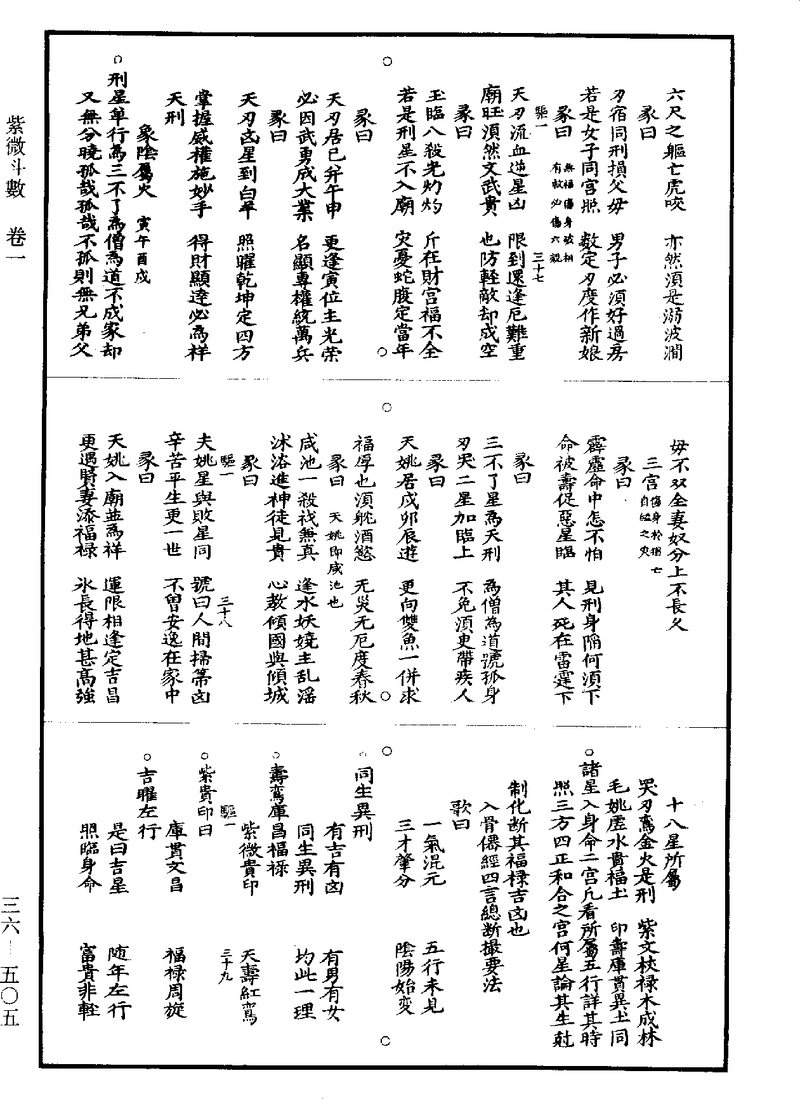 紫微斗數 卷一
三六—五〇五
六尺之軀亡虎咬 亦然須是溺波澗
彖曰
刃宿同刑損父母 男子必須好過房
若是女子同宮照 數定刃度作新娘
彖曰 無福傷身破相 有救必傷六親
驅一 三十七
天刃流血逆星凶 限到還逢厄難重
廟旺須然文武貴 也防輕敵却成空
彖曰
玉臨八殺光灼灼 斤在財宮福不全
若是刑星不入廟 灾憂蛇腹定當年
彖曰
天刃居巳兼午申 更逢寅位主光荣
必因武勇成大業 名顯專權統萬兵
彖曰
天刃凶星到白羊 照曜乾坤定四方
掌握威權施妙手 得財顯達必為祥
天刑
象陰屬火 寅午酉戌
刑星單行為三不了為僧為道不成家却
又無分曉孤哉孤哉不孤則無兄弟父
母不双全妻奴分上不長久
三宮 傷身於朔亡 自縊之灾
彖曰
霹靂命中怎不怕 見刑身陷何須下
命被壽促惡星臨 其人死在雷霆下
彖曰
三不了星為天刑 為僧為道號孤身
刃哭二星加臨上 不免須更帶疾人
彖曰
天姚居戌卯辰遊 更向雙魚一併求
福厚也須躭酒慾 无灾无厄度春秋
彖曰 天姚即咸池也
咸池一殺祋無真 逢水妖嬈主乱滛
沭浴進神徒見貴 心教傾國與傾城
彖曰
驅一 三十八
夫姚星與敗星同 號曰人間掃箒凶
辛苦平生更一世 不曾安逸在家中
彖曰
天姚入廟並為祥 運限相逢定吉昌
更遇賢妻添福禄 氷長得地甚高強
十八星所屬
哭刃鸞金火是刑 紫文杖禄木成林
毛姚虛水貴福土 印壽庫貫異土同
諸星入身命二宮凡看所屬五行詳其時
照三方四正和合之宮何星論其生尅
制化断其福禄吉凶也
入骨僊經四言總断撮要法
歌曰
一氣混元 五行未見
三才肇分 陰陽始变
同生異刑
有吉有凶 有男有女
同生異刑 均此一理
壽鸞庫昌福禄
紫微貴印 天壽紅鸞
驅一 三十九
紫貴印曰
庫貫文昌 福禄周旋
吉曜左行
是曰吉星 随年左行
照臨身命 富貴非輕